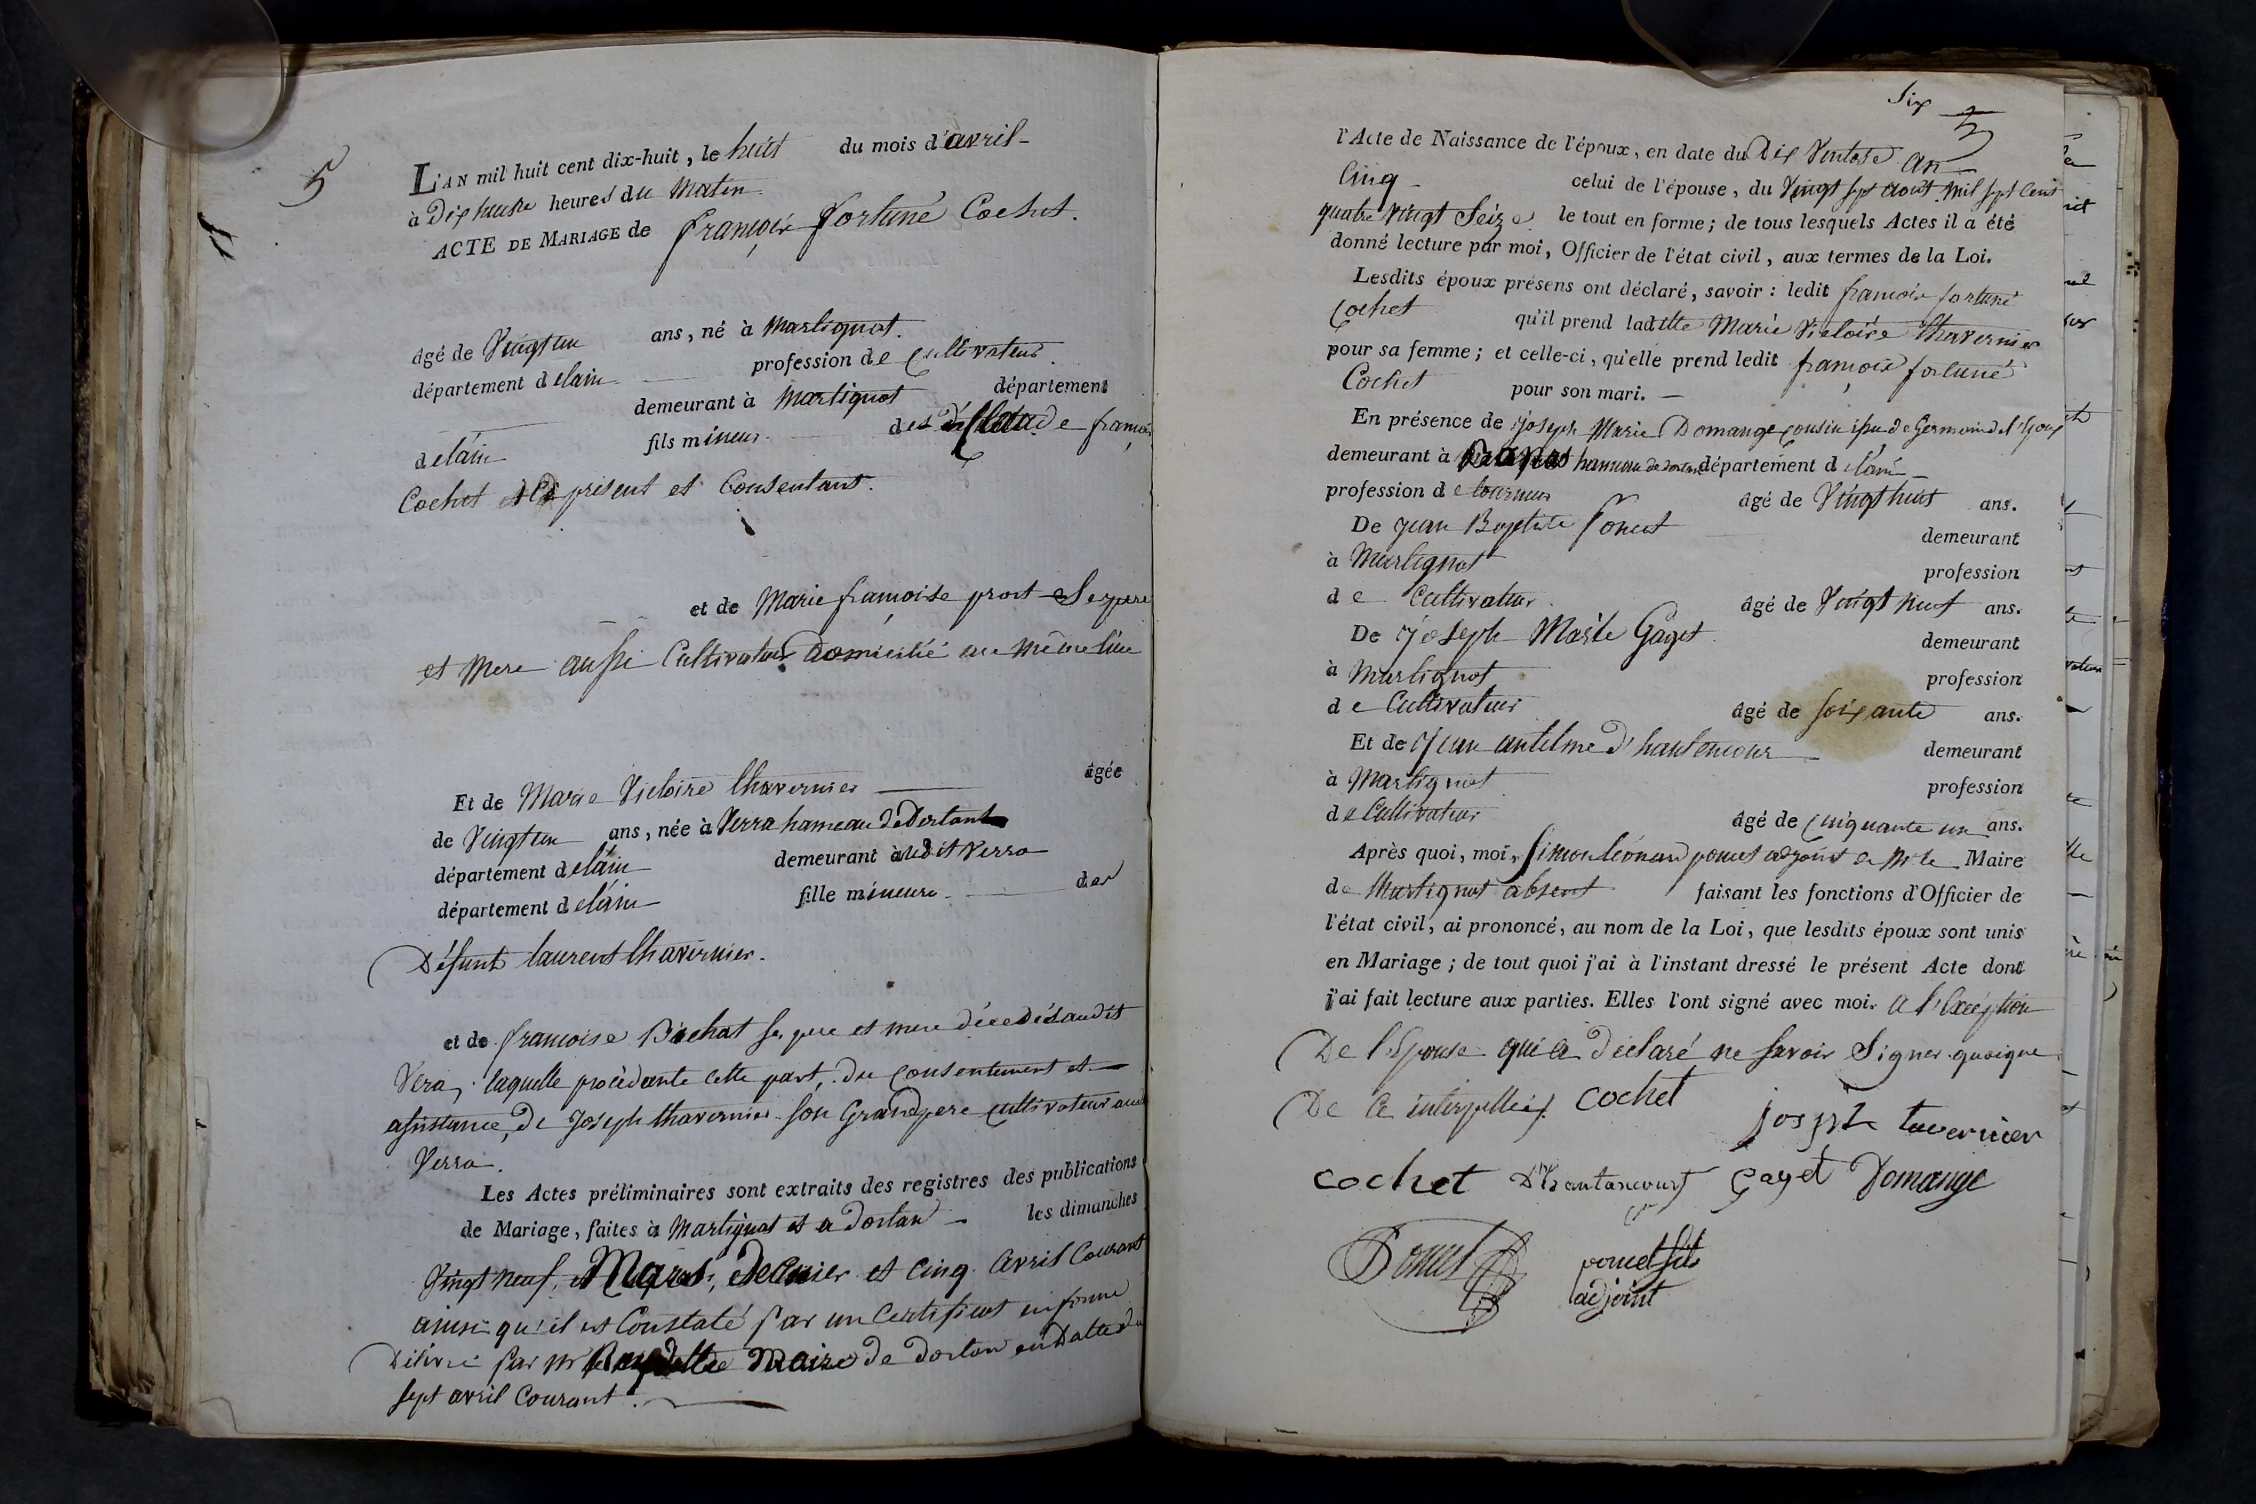 5
L'AN mil huit cent dix-huit, le huit du mois d'avril
à Dix heures heures du Matin
ACTE DE MARIAGE de françois fortuné Cochet.
âgé de Vingt un ans, né à Martignat.
département delain profession de Cultivateur.
demeurant à Martignat département
delain fils mineur des Claude françois
Cochet present et Consentant.
et de Marie françoise prost Ses pere
et Mere aussi Cultivateurs Domicilié au même lieu
Et de Marie Victoire thavernier âgée
de Vingt un ans, née à Verra hameau de Dortant
département delain demeurant audit Verra
département delain fille mineure des
Défunt laurent thavernier.
et de françoise Bichat ses pere et mere décedés audit
Vera, laquelle procèdante cette part, du consentement et
assistance, de Joseph thavernier son Grand pere cultivateur au
Verra.
Les Actes préliminaires sont extraits des registres des publications
de Mariage, faites à Martignat et a dortan les dimanches
Vingt neuf Mars dernier et cinq avril Courant
ainsi qu'il est Constaté par un Certificat en forme
Délivré par mr Maire de dortan en Datte du
sept avril Courant.
Six
5
l'Acte de Naissance de l'époux, en date du Dix Ventose an
Cinq celui de l'épouse, du Vingt sept août mil sept Cent
quatre vingt Seize le tout en forme; de tous lesquels Actes il a été
donné lecture par moi, Officier de l'état civil, aux termes de la Loi.
Lesdits époux présens ont déclaré, savoir : ledit françois fortuné
Cochet qu'il prend laditte Marie Victoire thavernier
pour sa femme; et celle-ci, qu'elle prend ledit françois fortuné
Cochet pour son mari.
En présence de joseph Marie Domange cousin issu de Germain de l'Epoux
demeurant à hameau de dortan département delain
profession de tourneur âgé de Vingt huit ans.
De jean Baptiste Ponct demeurant
à Martignat profession
de Cultivateur âgé de Vingt neuf ans.
De joseph Marie Gaget demeurant
à Martignat profession
de Cultivateur âgé de soixante ans.
Et de jean antelme d'hautencour demeurant
à Martignat profession
de Cultivateur âgé de cinquante un ans.
Après quoi, moi, Simon léonard poncet adjoint a Mr le Maire
de Martignat absent faisant les fonctions d'Officier de
l'état civil, ai prononcé, au nom de la Loi, que lesdits époux sont unis
en Mariage; de tout quoi j'ai à l'instant dressé le présent Acte dont
j'ai fait lecture aux parties. Elles l'ont signé avec moi. a l'Exception
De l'Epouse qui a déclaré ne savoir Signer quoique
De ce interpellée. cochet
joseph tavernier
cochet Dhautancourt Gaget Domange
Poncet
poncet fils
adjoint